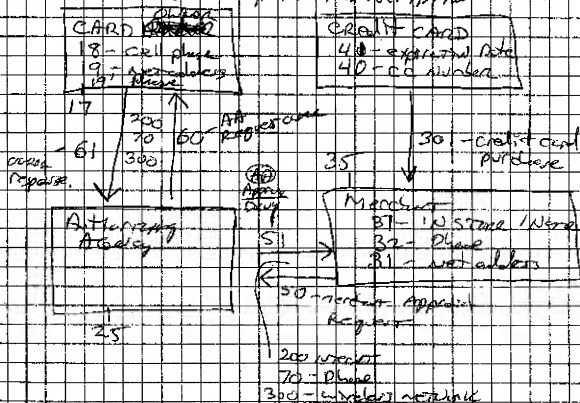 CARD owner
18 - Cell phone
9 - Net address
19' phone
17
200
70
300
60 - AA
Request
61
response
Authorizing
Agency
25
CREDIT CARD
41 - expiration Date
40 - CC Number
301 - credit card
purchase
35
Merchant
37 - IN STORE
32 - Phone
31 - Net address
Approve
Deny
51
50 - Merchant Approval
Request
200 Internet
70 - Phone
300 - wireless NETWORK